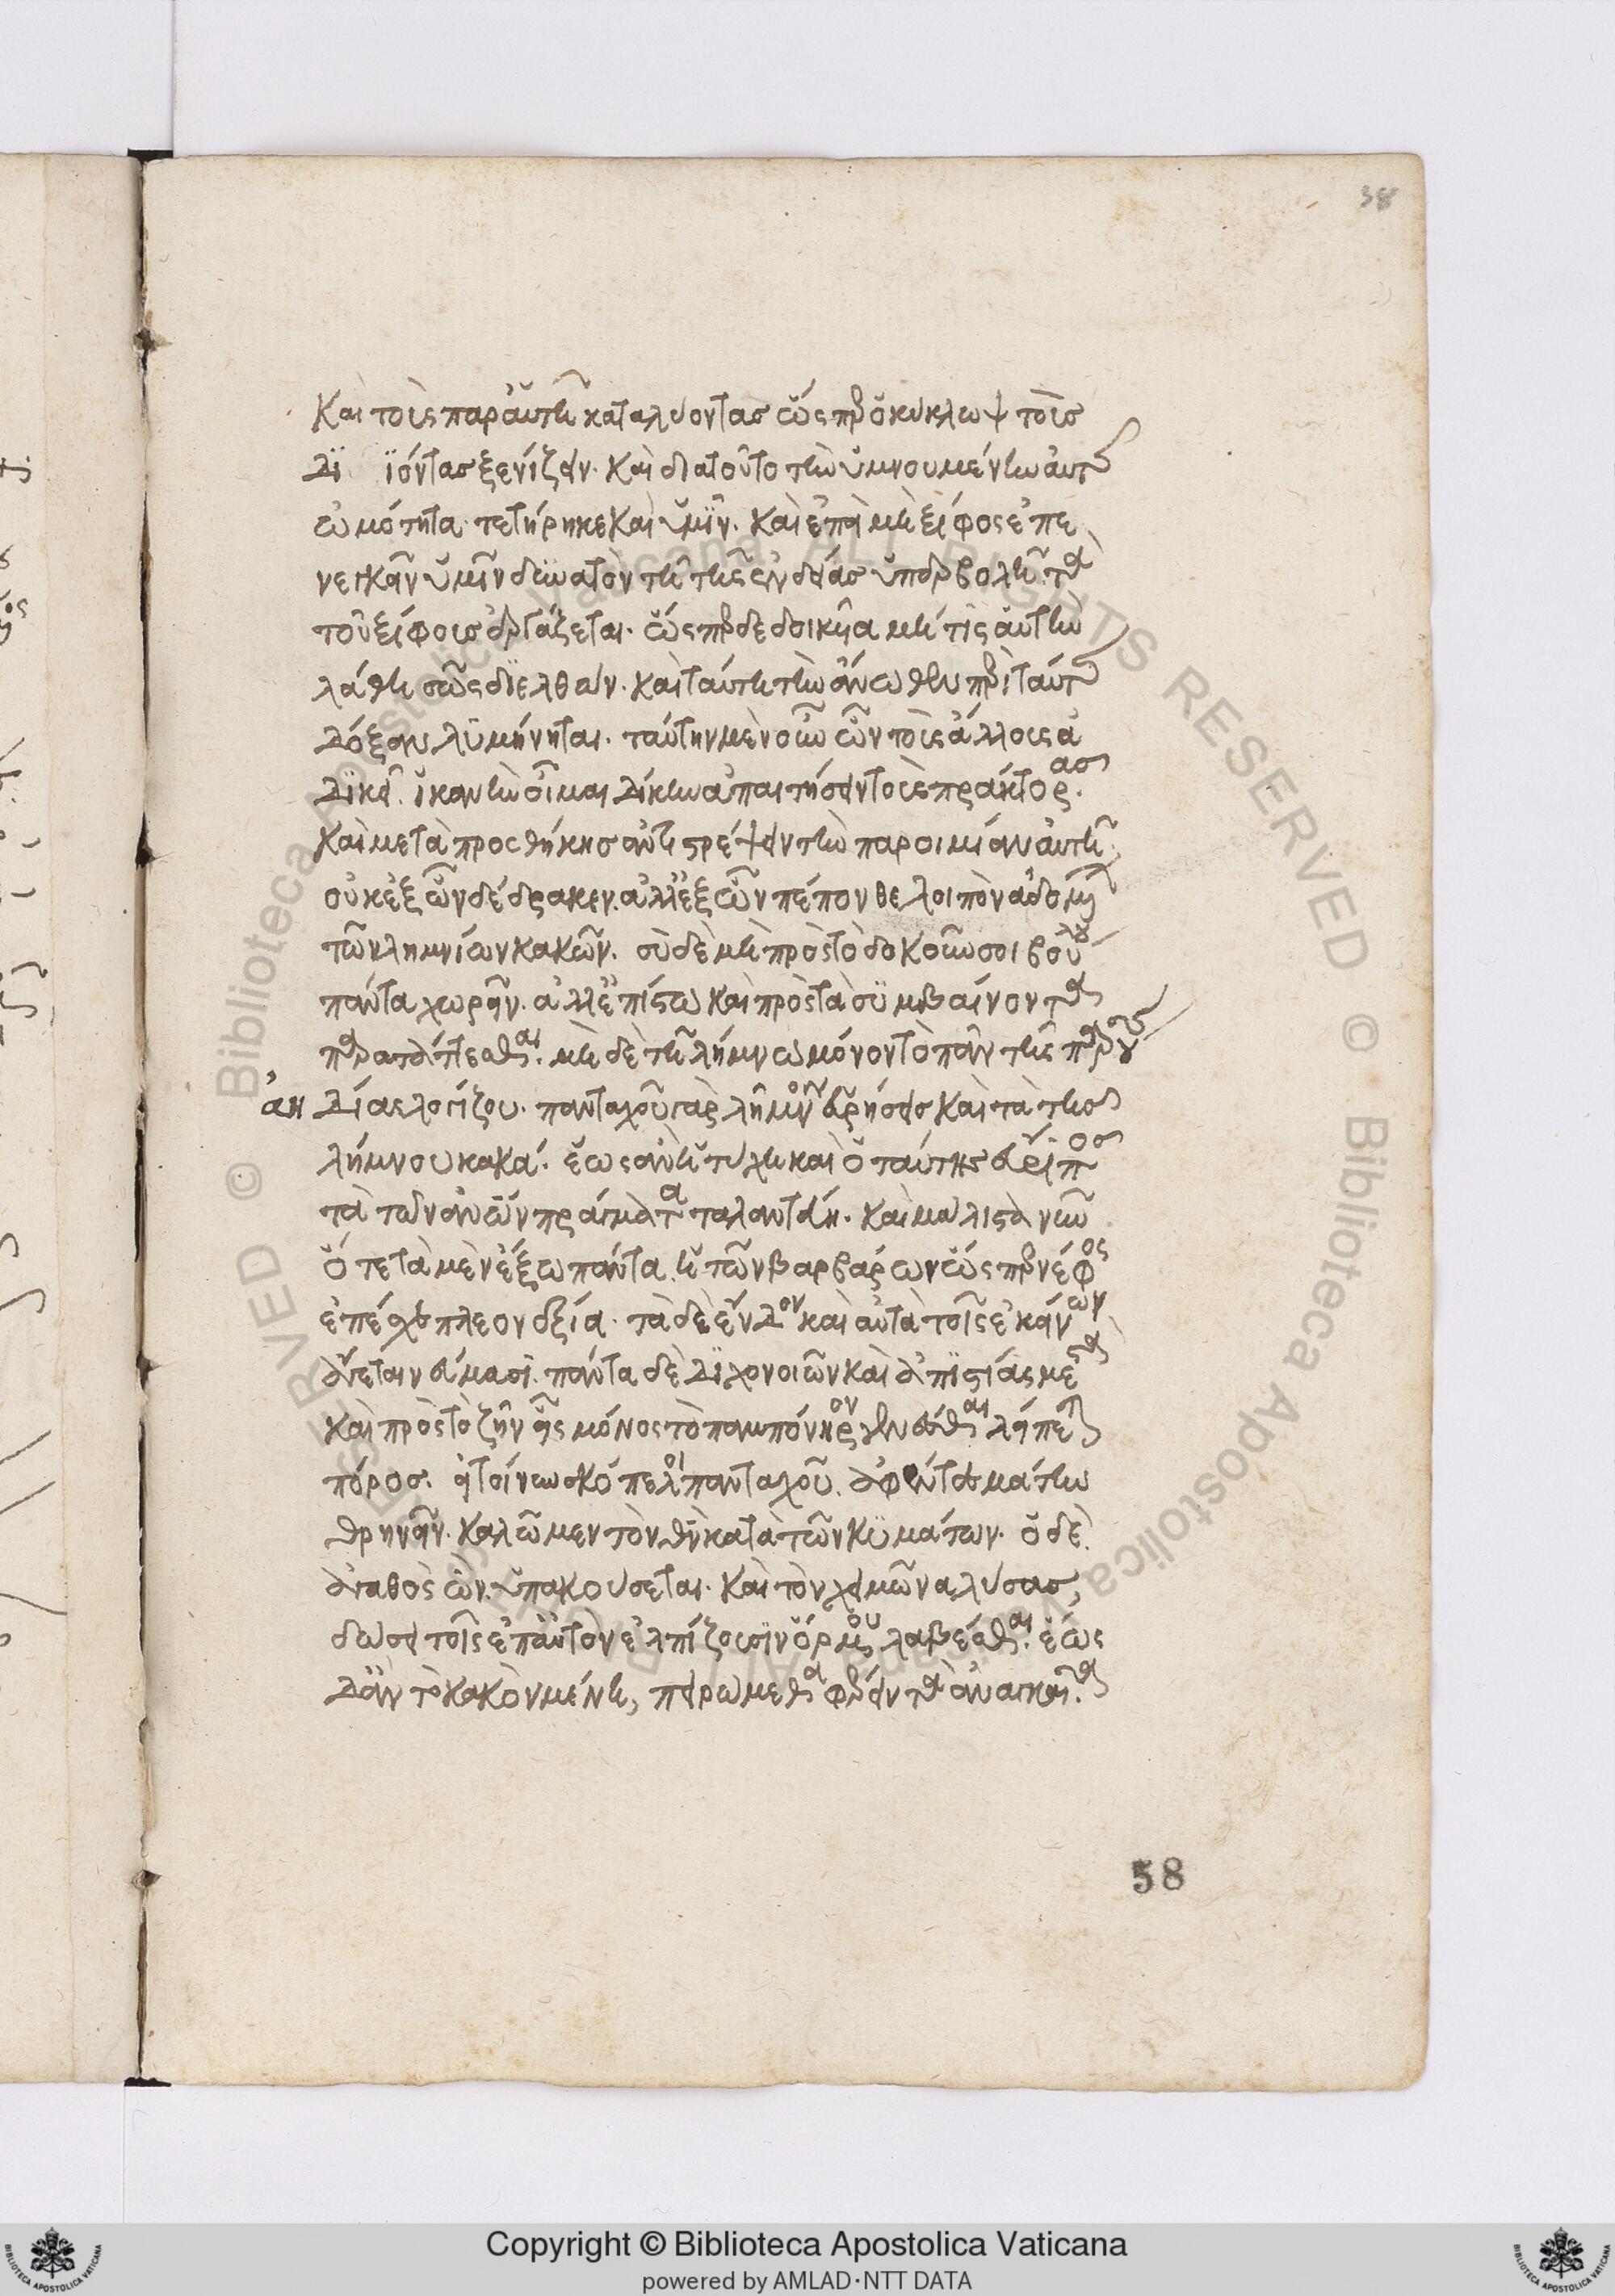 38
καὶ τοὺς παρ' αὐτῆ καταλύοντας ὥσπερ ὁ κύκλωψ τοὺς
διϊόντας ξενίζειν. καὶ διατοῦτο τὴν ὑμνουμένην αὐτῆς
ὠμότητα τετήρηκε καὶ ὑμῖν. καὶ ἐπεὶ μὴ ξίφος ἐπε
νεγκεῖν ὑμῖν δυνατὸν τῆ τῆς ἐνδείας ὑπερβολῆ τὰ
τοῦ ξίφους ἐργάζεται. ὥσπερ δεδοικυῖα μή τις αὐτὴν
λάθη σῶς διελθών. καὶ ταύτη τὴν ἄνωθεν περὶ ταύτης
δόξαν λυμήνηται. ταύτην μὲν οὖν ὧν τοὺς ἄλλους ἀ
δικεῖ. ἱκανὴν οἶμαι δίκην ἀπαιτήσειν τοὺς πράκτορας.
καὶ μετὰ προσθήκης ἀντιστρέψειν τὴν παροιμίαν αὐτῆ
οὐκ ἐξ ὧν δέδρακεν. ἀλλ' ἐξ ὧν πέπονθε λοιπὸν ἀδομένην
τῶν λημνίων κακῶν. σὺ δὲ μὴ πρὸς τὸ δοκοῦν σοι βούλου
πάντα χωρεῖν. ἀλλ' ἐπίστω καὶ πρὸς τὰ συμβαίνοντα
παρατάττεσθαι. μὴ δὲ τῆ λήμνω μόνον τὸ πᾶν τῆς
ἀη
δίας λογίζου. πανταχοῦ γὰρ λῆμνον εὑρήσεις καὶ τὰ τῆς
λήμνου κακά. ἕως ἂν ἡ τύχη καὶ ὁ ταύτης εὔριπος
τὰ τῶν ἀνῶν πράγματα ταλαντεύη. καὶ μάλιστα νῦν
ὅτε τὰ μὲν ἔξω πάντα ἡ τῶν βαρβάρων ὥσπερ νέφος
ἐπέχει πλεονεξία. τὰ δὲ ἔνδον καὶ αὐτὰ τοῖς ἐκείνων
ἄγεται νεύμασι. πάντα δὲ διχονοιῶν καὶ ἀπιστίας μεστὰ
καὶ πρὸς τὸ ζῆν εἷς μόνος τὸ παμπόνηρον γενέσθαι λείπεται
πόρος. ἐπεὶ γοῦν σκόπελοι πανταχοῦ. ἀφέντες μάτην
θρηνεῖν. καλῶμεν τὸν θν κατὰ τῶν κυμάτων. ὁ δὲ
ἀγαθὸς ὢν. ὑπακούσεται. καὶ τὸν χειμῶνα λύσας,
δώσει τοῖς ἐπ' αὐτὸν ἐλπίζουσιν ὅρμου λαβέσθαι. ἕως
δ' ἂν τὸ κακὸν μένη, πειρώμεθα φέρειν τὰ ἀναγκαῖα.
58
Copyright © Biblioteca Apostolica Vaticana
powered by AMLAD·NTT DATA